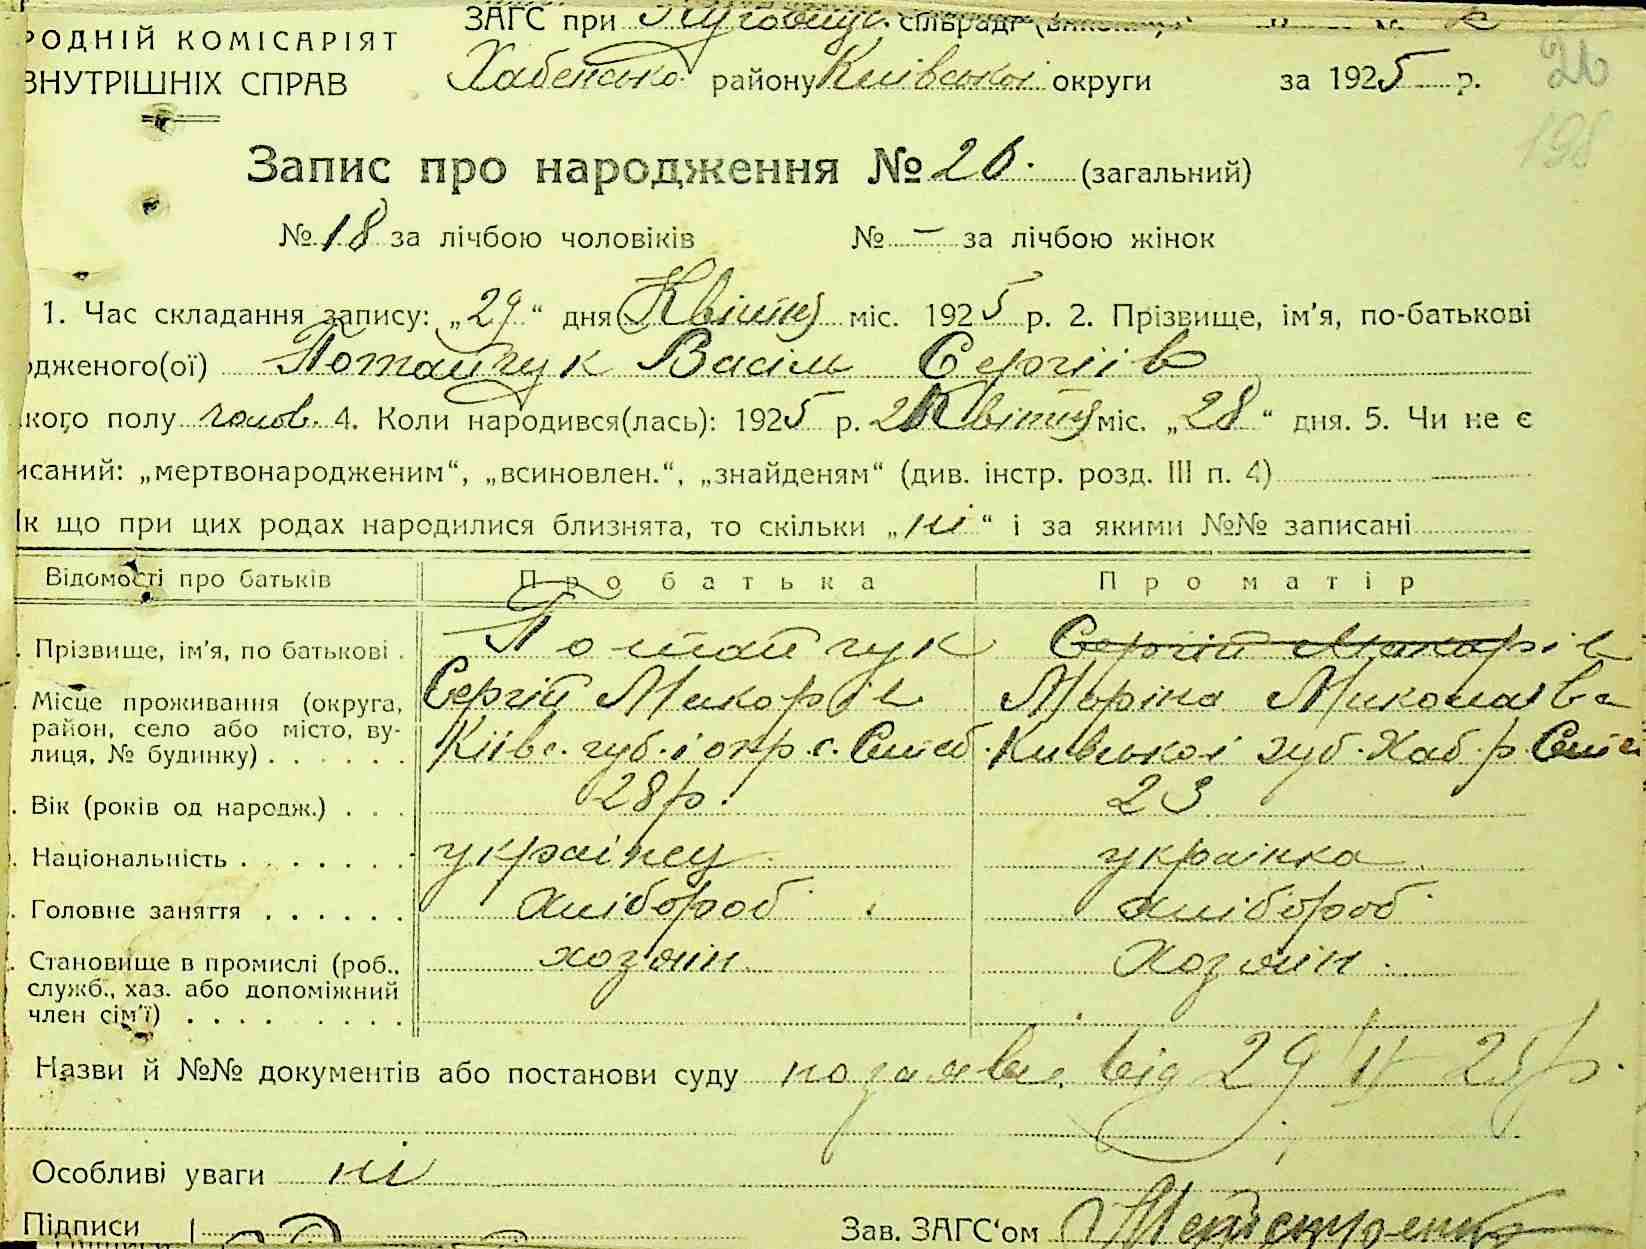 ЗАГС при Луговиц. сільраді
РОДНІЙ КОМІСАРІЯТ
Хабенсько району Київської округи за 1925 р. 26
ВНУТРІШНІХ СПРАВ
198
Запис про народження № 26. (загальний)
№ 18 за лічбою чоловіків № — за лічбою жінок
1. Час складання запису: „29“ дня Квітня міс. 1925 р. 2. Прізвище, ім'я, по-батькові
дженого(ої) Потапчук Васіль Сергіів
кого полу чолов. 4. Коли народився(лась): 1925 р. Квітня міс. „28“ дня. 5. Чи не є
исаний: „мертвонародженим“, „всиновлен.“, „знайденям“ (див. інстр. розд. III п. 4)
к що при цих родах народилися близнята, то скільки „ні“ і за якими №№ записані
Відомості про батьків Про батька Про матір
Прізвище, ім'я, по батькові Потапчук Сергій Макорів
Сергій Макорів Моріна Миколаіва
Місце проживання (округа, район, село або місто, вулиця, № будинку) Київс. губ. і окр. с. Киівськоі губ. Хаб. р.
Вік (років од народж.) 28 р. 23
Національність украінец украінка
Головне заняття хлібороб хлібороб
Становище в промислі (роб., хозяін хозяін
служб., хаз. або допоміжний
член сім'ї)
Назви й №№ документів або постанови суду по заяве від 29/IV 25 р.
Особливі уваги ні
Підписи Зав. ЗАГС'ом